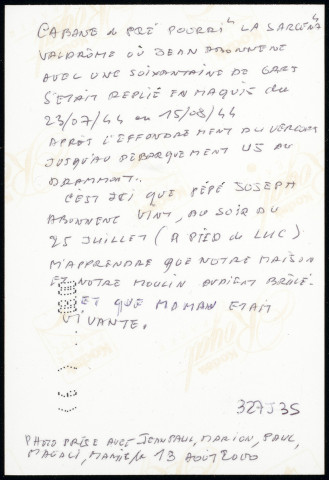 CABANE de PRÉ POURRI LA SARCENA
VALDRÔME OÙ JEAN ABONNENC
AVEC UNE SOIXANTAINE DE GARS
S'ETAIT REPLIÉ EN MAQUIS du
23/07/44 au 15/08/44
APRÈS L'EFFONDREMENT DU VERCORS
JUSQU'AU DÉBARQUEMENT US AU
DRAMMONT.
C'EST ICI QUE PÉPÉ JOSEPH
ABONNENC VINT, AU SOIR DU
25 JUILLET (A PIED de LUC)
M'APPRENDRE QUE NOTRE MAISON
ET NOTRE MOULIN AVAIENT BRÛLÉ
ET QUE MAMAN ETAIT
VIVANTE.
327J35
PHOTO PRISE AVEC JEAN PAUL, MARION, PAUL,
MAGALI, MAMIE, le 13 AOÛT 2000